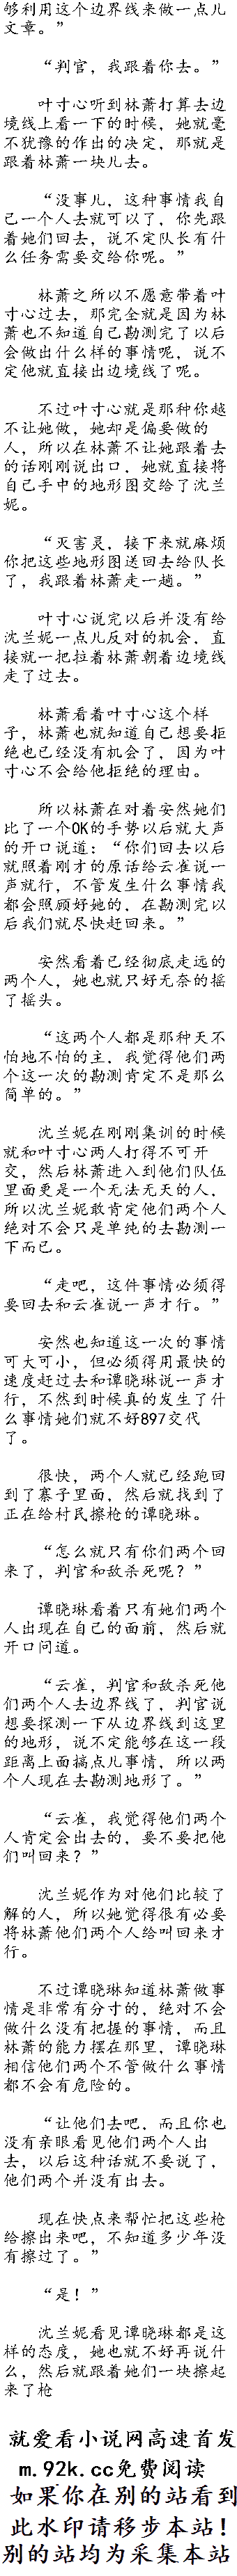 够利用这个边界线来做一点儿
文章。”
“判官，我跟着你去。”
叶寸心听到林萧打算去边
境线上看一下的时候，她就毫
不犹豫的作出的决定，那就是
跟着林萧一块儿去。
“没事儿，这种事情我自
己一个人去就可以了，你先跟
着她们回去，说不定队长有什
么任务需要交给你呢。”
林萧之所以不愿意带着叶
寸心过去，那完全就是因为林
萧也不知道自己勘测完了以后
会做出什么样的事情呢，说不
定他就直接出边境线了呢。
不过叶寸心就是那种你越
不让她做，她却是偏要做的
人，所以在林萧不让她跟着去
的话刚刚说出口，她就直接将
自己手中的地形图交给了沈兰
妮。
“灭害灵，接下来就麻烦
你把这些地形图送回去给队长
了，我跟着林萧走一趟。”
叶寸心说完以后并没有给
沈兰妮一点儿反对的机会，直
接就一把拉着林萧朝着边境线
走了过去。
林萧看着叶寸心这个样
子，林萧也就知道自己想要拒
绝也已经没有机会了，因为叶
寸心不会给他拒绝的理由。
所以林萧在对着安然她们
比了一个OK的手势以后就大声
的开口说道：“你们回去以后
就照着刚才的原话给云雀说一
声就行，不管发生什么事情我
都会照顾好她的，在勘测完以
后我们就尽快赶回来。”
安然看着已经彻底走远的
两个人，她也就只好无奈的摇
了摇头。
“这两个人都是那种天不
怕地不怕的主，我觉得他们两
个这一次的勘测肯定不是那么
简单的。”
沈兰妮在刚刚集训的时候
就和叶寸心两人打得不可开
交，然后林萧进入到他们队伍
里面更是一个无法无天的人，
所以沈兰妮敢肯定他们两个人
绝对不会只是单纯的去勘测一
下而已。
“走吧，这件事情必须得
要回去和云雀说一声才行。”
安然也知道这一次的事情
可大可小，但必须得用最快的
速度赶过去和谭晓琳说一声才
行，不然到时候真的发生了什
么事情她们就不好897交代
了。
很快，两个人就已经跑回
到了寨子里面，然后就找到了
正在给村民擦枪的谭晓琳。
“怎么就只有你们两个回
来了，判官和敌杀死呢？”
谭晓琳看着只有她们两个
人出现在自己的面前，然后就
开口问道。
“云雀，判官和敌杀死他
们两个人去边界线了，判官说
想要探测一下从边界线到这里
的地形，说不定能够在这一段
距离上面搞点儿事情，所以两
个人现在去勘测地形了。”
“云雀，我觉得他们两个
人肯定会出去的，要不要把他
们叫回来？”
沈兰妮作为对他们比较了
解的人，所以她觉得很有必要
将林萧他们两个人给叫回来才
行。
不过谭晓琳知道林萧做事
情是非常有分寸的，绝对不会
做什么没有把握的事情，而且
林萧的能力摆在那里，谭晓琳
相信他们两个不管做什么事情
都不会有危险的。
“让他们去吧，而且你也
没有亲眼看见他们两个人出
去，以后这种话就不要说了，
他们两个并没有出去。
现在快点来帮忙把这些枪
给擦出来吧，不知道多少年没
有擦过了。”
“是！”
沈兰妮看见谭晓琳都是这
样的态度，她也就不好再说什
么，然后就跟着她们一块擦起
来了枪
就爱看小说网高速首发
m.92k.cc免费阅读
如果你在别的站看到
此水印请移步本站！
别的站均为采集本站